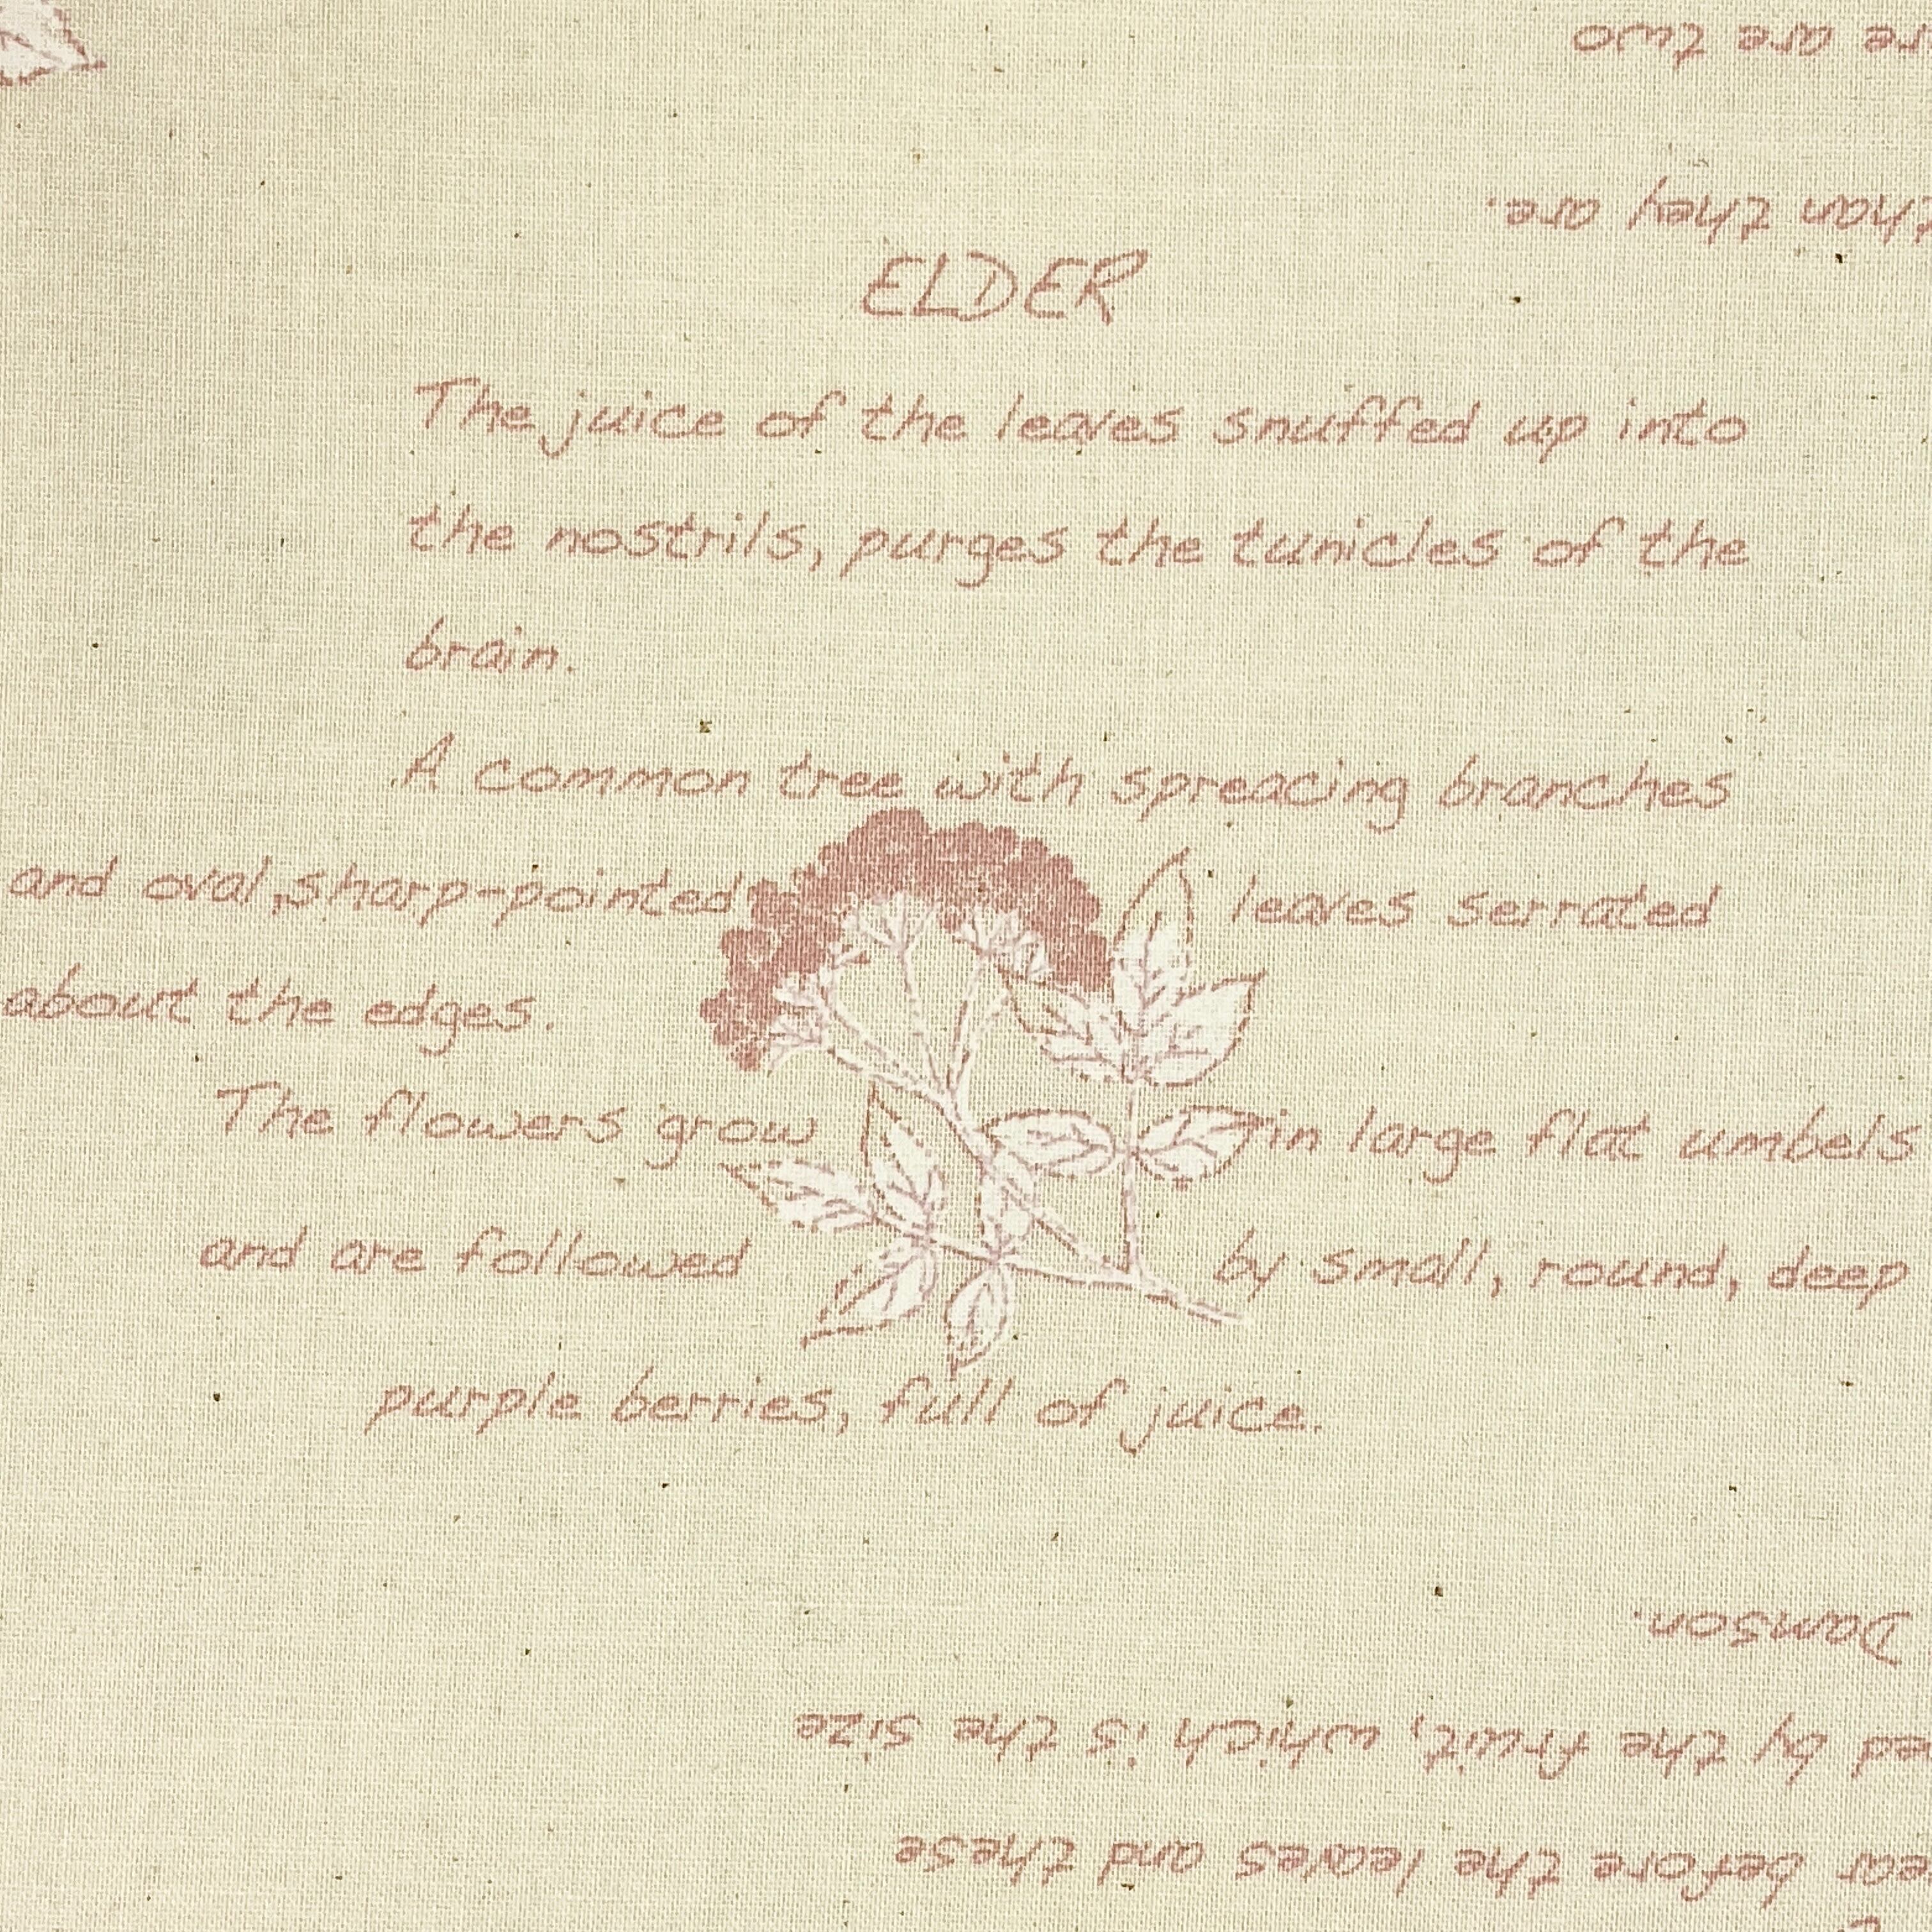 re are two
than they are.
ELDER
The juice of the leaves snuffed up into
the nostrils, purges the tunicles of the
brain.
A common tree with spreacing branches
and oval, sharp-pointed leaves serrated
about the edges.
The flowers grow in large flat umbels
and are followed by small, round, deep
purple berries, full of juice.
Damson.
ed by the fruit, which is the size
ear before the leaves and these